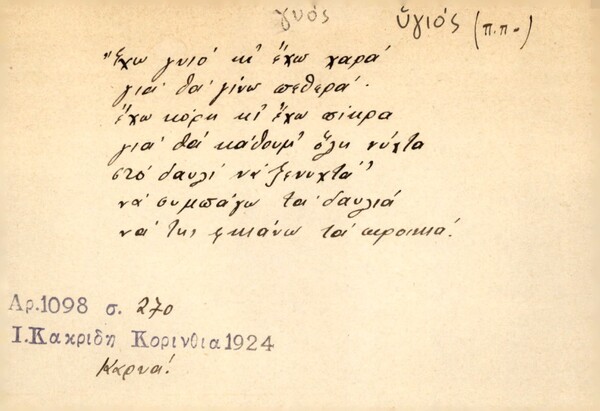 γυός ὑγιός (π.π.)
"Ἔχω γυιό κι ἔχω χαρά
για θα γίνω πεθερά.
ἔχω κόρη κι ἔχω πίκρα
για θα κάθουμ' ὅλη νύχτα
στό δαυλί νά ξενυχτά"
νά συμπάγω τα δαυλιά
νά της φκιάνω τα προικιά!
Αρ.1098 σ. 270
Ι.Κακριδη Κορινθια 1924
Καρυα!